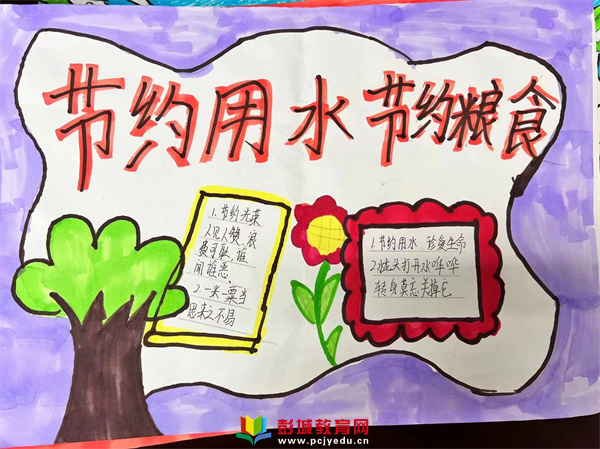 节约用水 节约粮食
1.节约光荣
人见人赞,浪
费可耻,谁
闻谁恶.
2.一米一粟当
思来之不易
1.节约用水 珍爱生命
2.龙头打开水哗哗
转身莫忘关掉它
彭城教育网
www.pcjyedu.cn